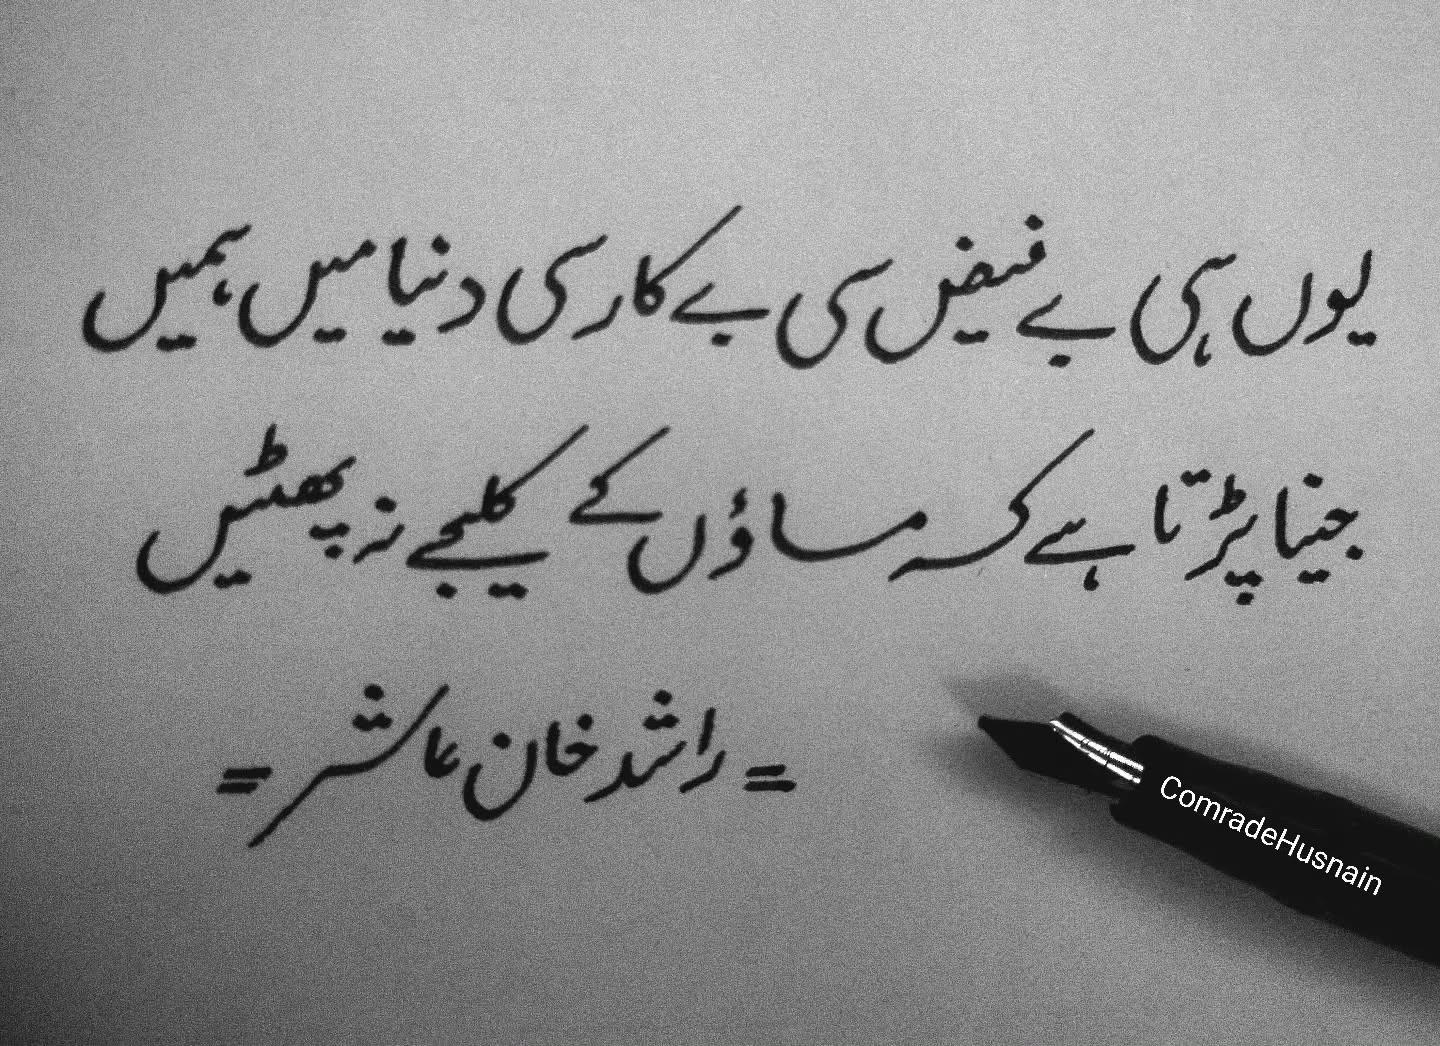 یوں ہی بے فیض سی بے کار سی دنیا میں ہمیں
جینا پڑتا ہے کہ ماؤں کے کلیجے نہ پھٹیں
= راشد خان عاشر =
ComradeHusnain